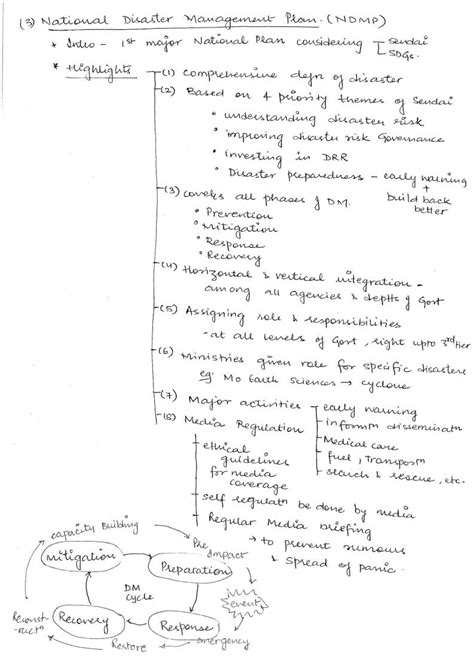 (3) National Disaster Management Plan. (NDMP)
* Intro - 1st major National Plan considering Sendai
SDGs.
* Highlights
(1) comprehensive defn of disaster
(2) Based on 4 priority themes of Sendai
• understanding disaster risk
• improving disaster risk Governance
• investing in DRR
• Disaster preparedness - early warning
+
build back
better
(3) covers all phases of DM.
• Prevention
• Mitigation
• Response
• Recovery
(4) Horizontal & vertical integration -
among all agencies & deptts of Govt
(5) Assigning role & responsibilities
-at all levels of Govt, right upto 3rd tier
(6) Ministries given role for specific disasters
eg: Mo Earth Sciences → cyclone
(7) Major activities
early warning
informn disseminatn
Medical care
fuel, Transportn
search & rescue, etc.
(8) Media Regulation
ethical
guidelines
for media
coverage
self regulatn be done by media
Regular Media briefing
→ to prevent rumours
& spread of panic.
capacity Building
Mitigation
Pre
Impact
Preparation
event
DM
cycle
Reconst
-ructn
Recovery
Response
Restore
emergency